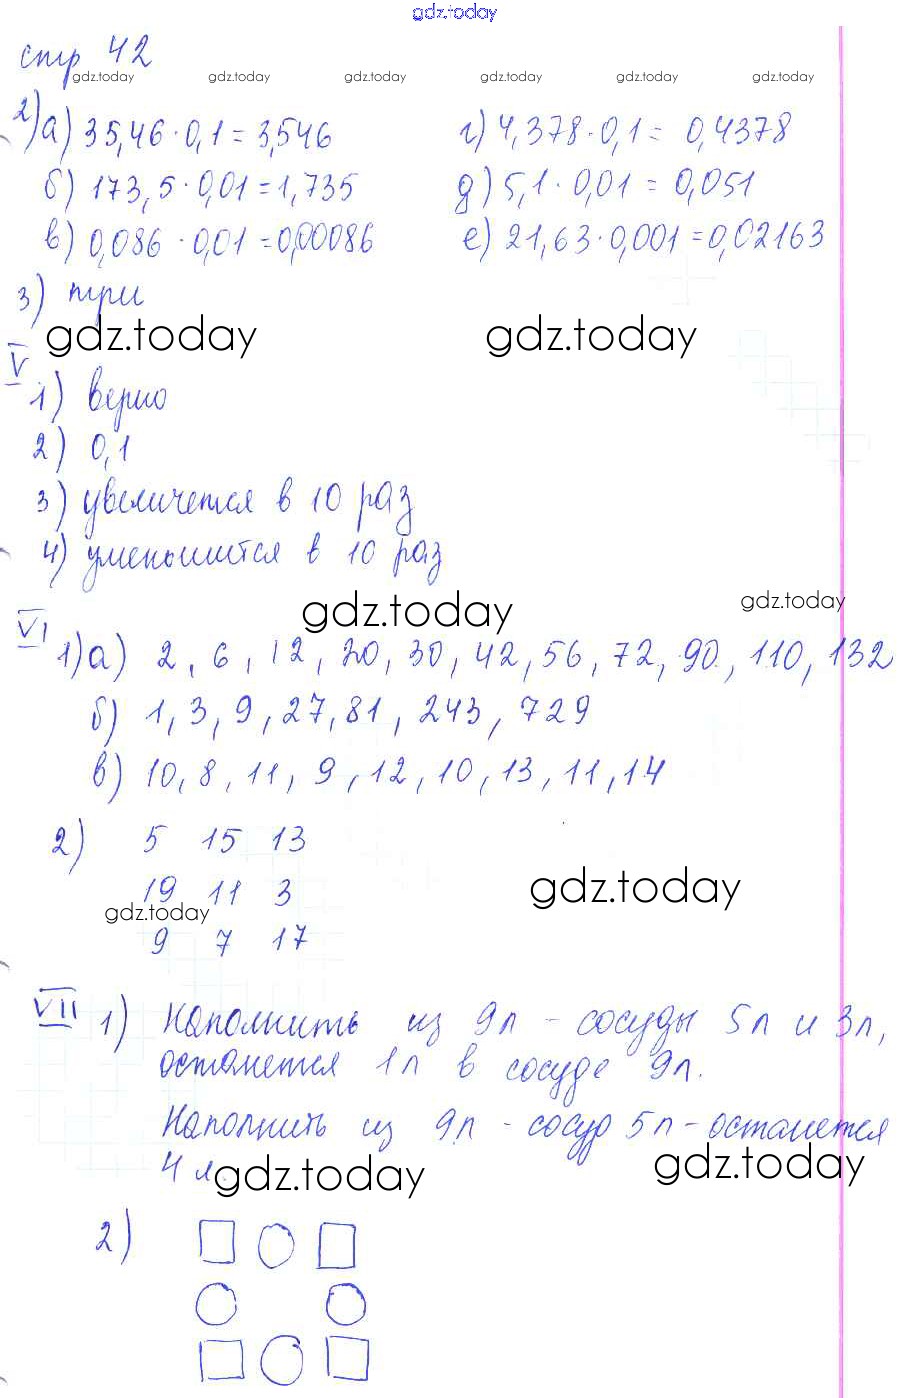 gdz.today
стр 42
gdz.today gdz.today gdz.today gdz.today gdz.today gdz.today
2) а) 35,46 · 0,1 = 3,546 г) 4,378 · 0,1 = 0,4378
б) 173,5 · 0,01 = 1,735 д) 5,1 · 0,01 = 0,051
в) 0,086 · 0,01 = 0,00086 е) 21,63 · 0,001 = 0,02163
3) три
gdz.today gdz.today
V
1) верно
2) 0,1
3) увеличется в 10 раз
4) уменьшится в 10 раз
gdz.today gdz.today
VI
1) а) 2, 6, 12, 20, 30, 42, 56, 72, 90, 110, 132
б) 1, 3, 9, 27, 81, 243, 729
в) 10, 8, 11, 9, 12, 10, 13, 11, 14
2) 5 15 13
19 11 3
gdz.today gdz.today
9 7 17
VII 1) Наполнить из 9л - сосуды 5л и 3л,
останется 1л в сосуде 9л.
Наполнить из 9л - сосуд 5л - останется
4 л.
gdz.today gdz.today
2)